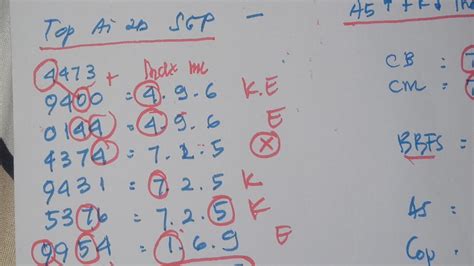 Top Ai 2D SGP -
4473 + Indx m
9400 = 4.9.6 K.E
0144 = 4.9.6 E
4374 = 7.2.5 X
9431 = 7.2.5 K
5376 = 7.2.5 K
9954 = 1.6.9 E
AS
CB =
CM =
BBFS =
AS =
Cop